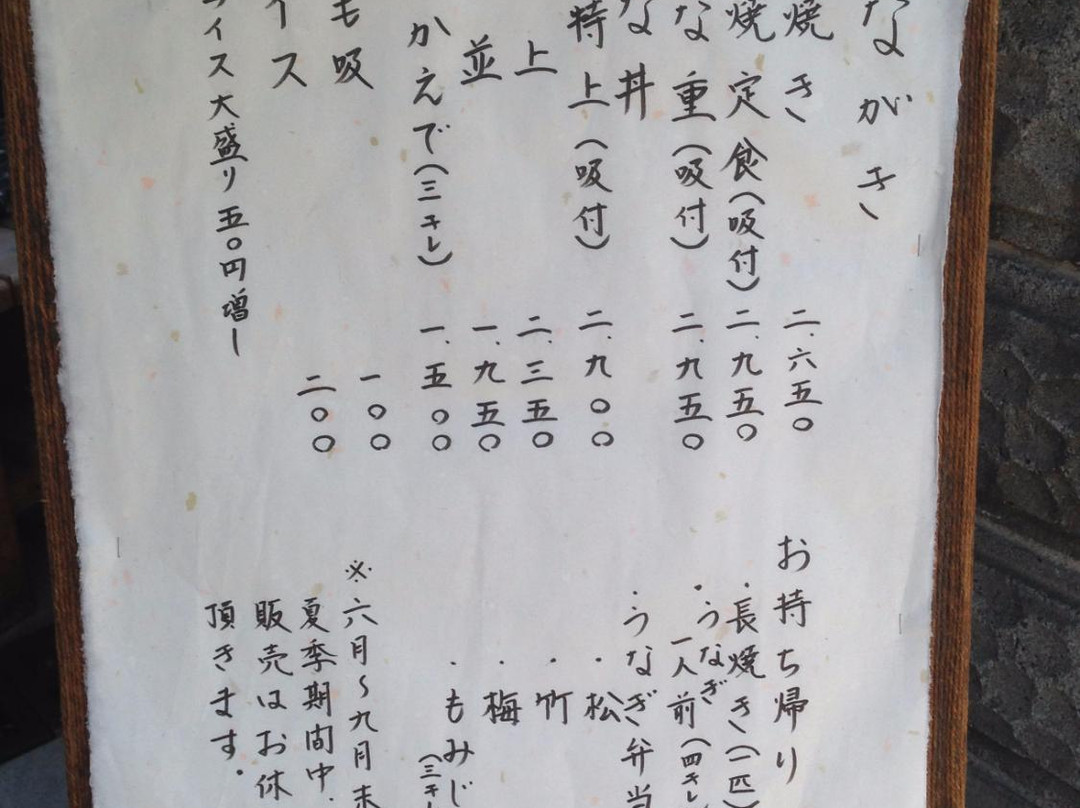 ながき
焼き 二、六五〇
焼定食(吸付) 二、九五〇
な重(吸付) 二、九五〇
な丼
特上(吸付) 二、九〇〇
上 二、三五〇
並 一、九五〇
かえで(三キレ) 一、五〇〇
も吸 一〇〇
イス 二〇〇
イス大盛り五〇円増し
お持ち帰り
・長焼き(一匹)
・うなぎ
一人前(四キレ
・うなぎ弁当
・松
・竹
・梅
・もみじ
(三キレ
※六月〜九月末
夏季期間中、
販売はお休
頂きます。